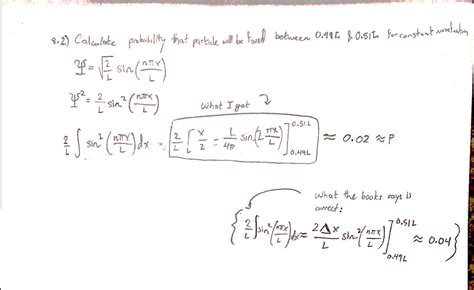 8.2) Calculate probability that particle will be found between 0.49L & 0.51L for constant wavefunction
Ψ = √(2/L) sin(nπx/L)
Ψ² = 2/L sin²(nπx/L)
What I got
2/L ∫ sin²(nπx/L) dx = 2/L [x/2 - L/4π sin(2πx/L)]_{0.49L}^{0.51L} ≈ 0.02 ≈ P
What the books says is
correct:
{2/L ∫ sin²(nπx/L) dx ≈ 2Δx/L sin²(nπx/L)]_{0.49L}^{0.51L} ≈ 0.04}